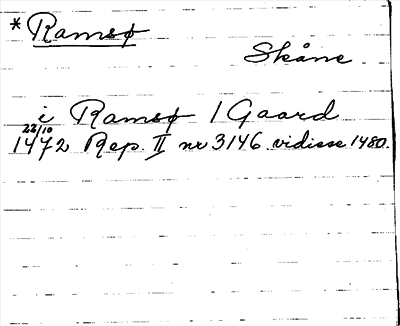 *Ramsø
Skåne
i Ramsø 1 Gaard
22/10
1472 Rep. II nr 3146. vidisse 1480.